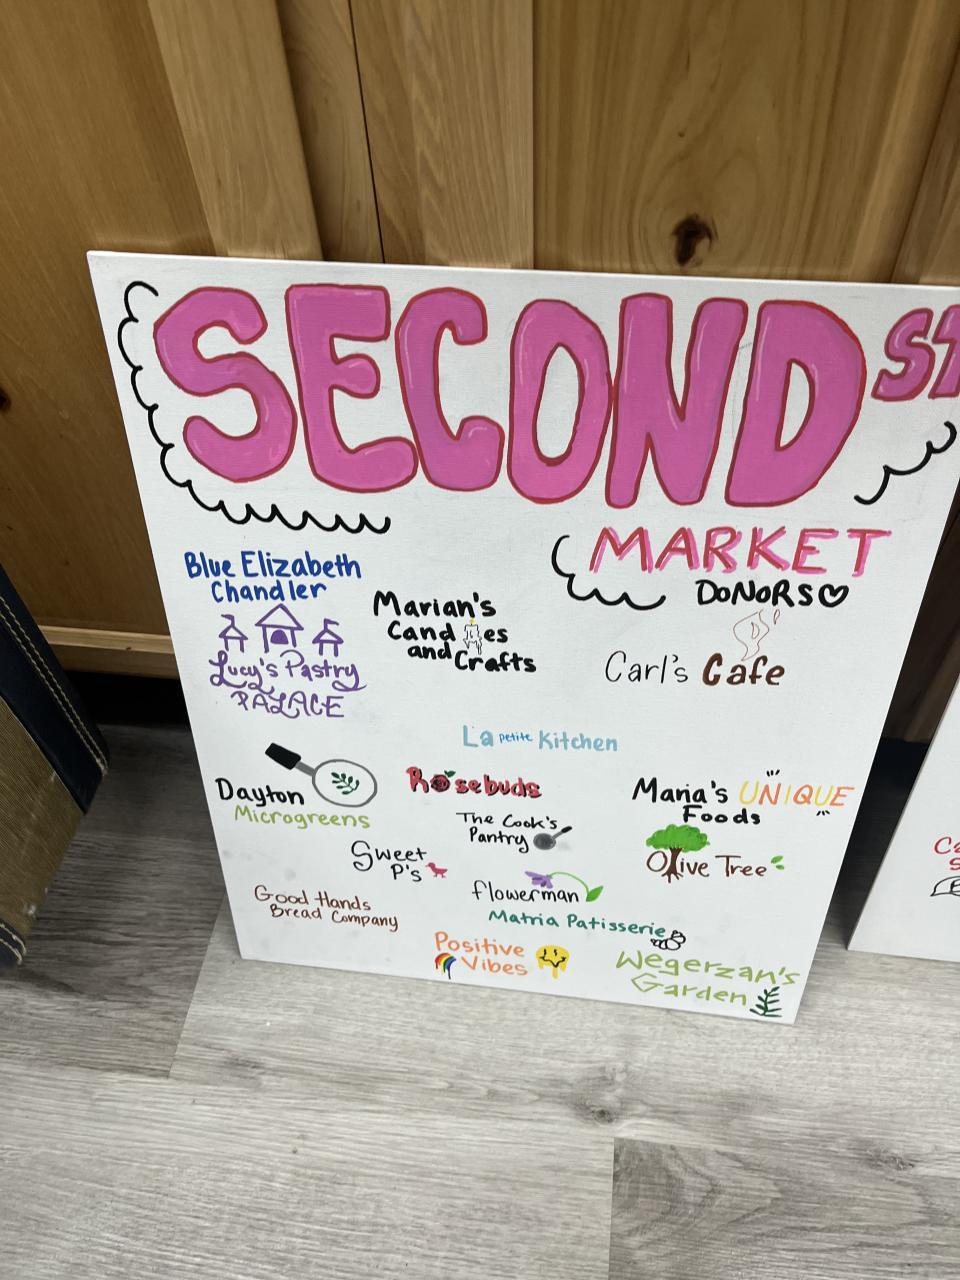 SECOND ST
MARKET
DONORS
Blue Elizabeth
Chandler
Marian's
Candles
and Crafts
Lucy's Pastry
PALACE
Carl's Cafe
La petite Kitchen
Dayton
Microgreens
Rosebuds
Maria's UNIQUE
Foods
The Cook's
Pantry
Olive Tree
Sweet
P's
flowerman
Good Hands
Bread Company
Matria Patisserie
Positive
Vibes
Wegerzan's
Garden